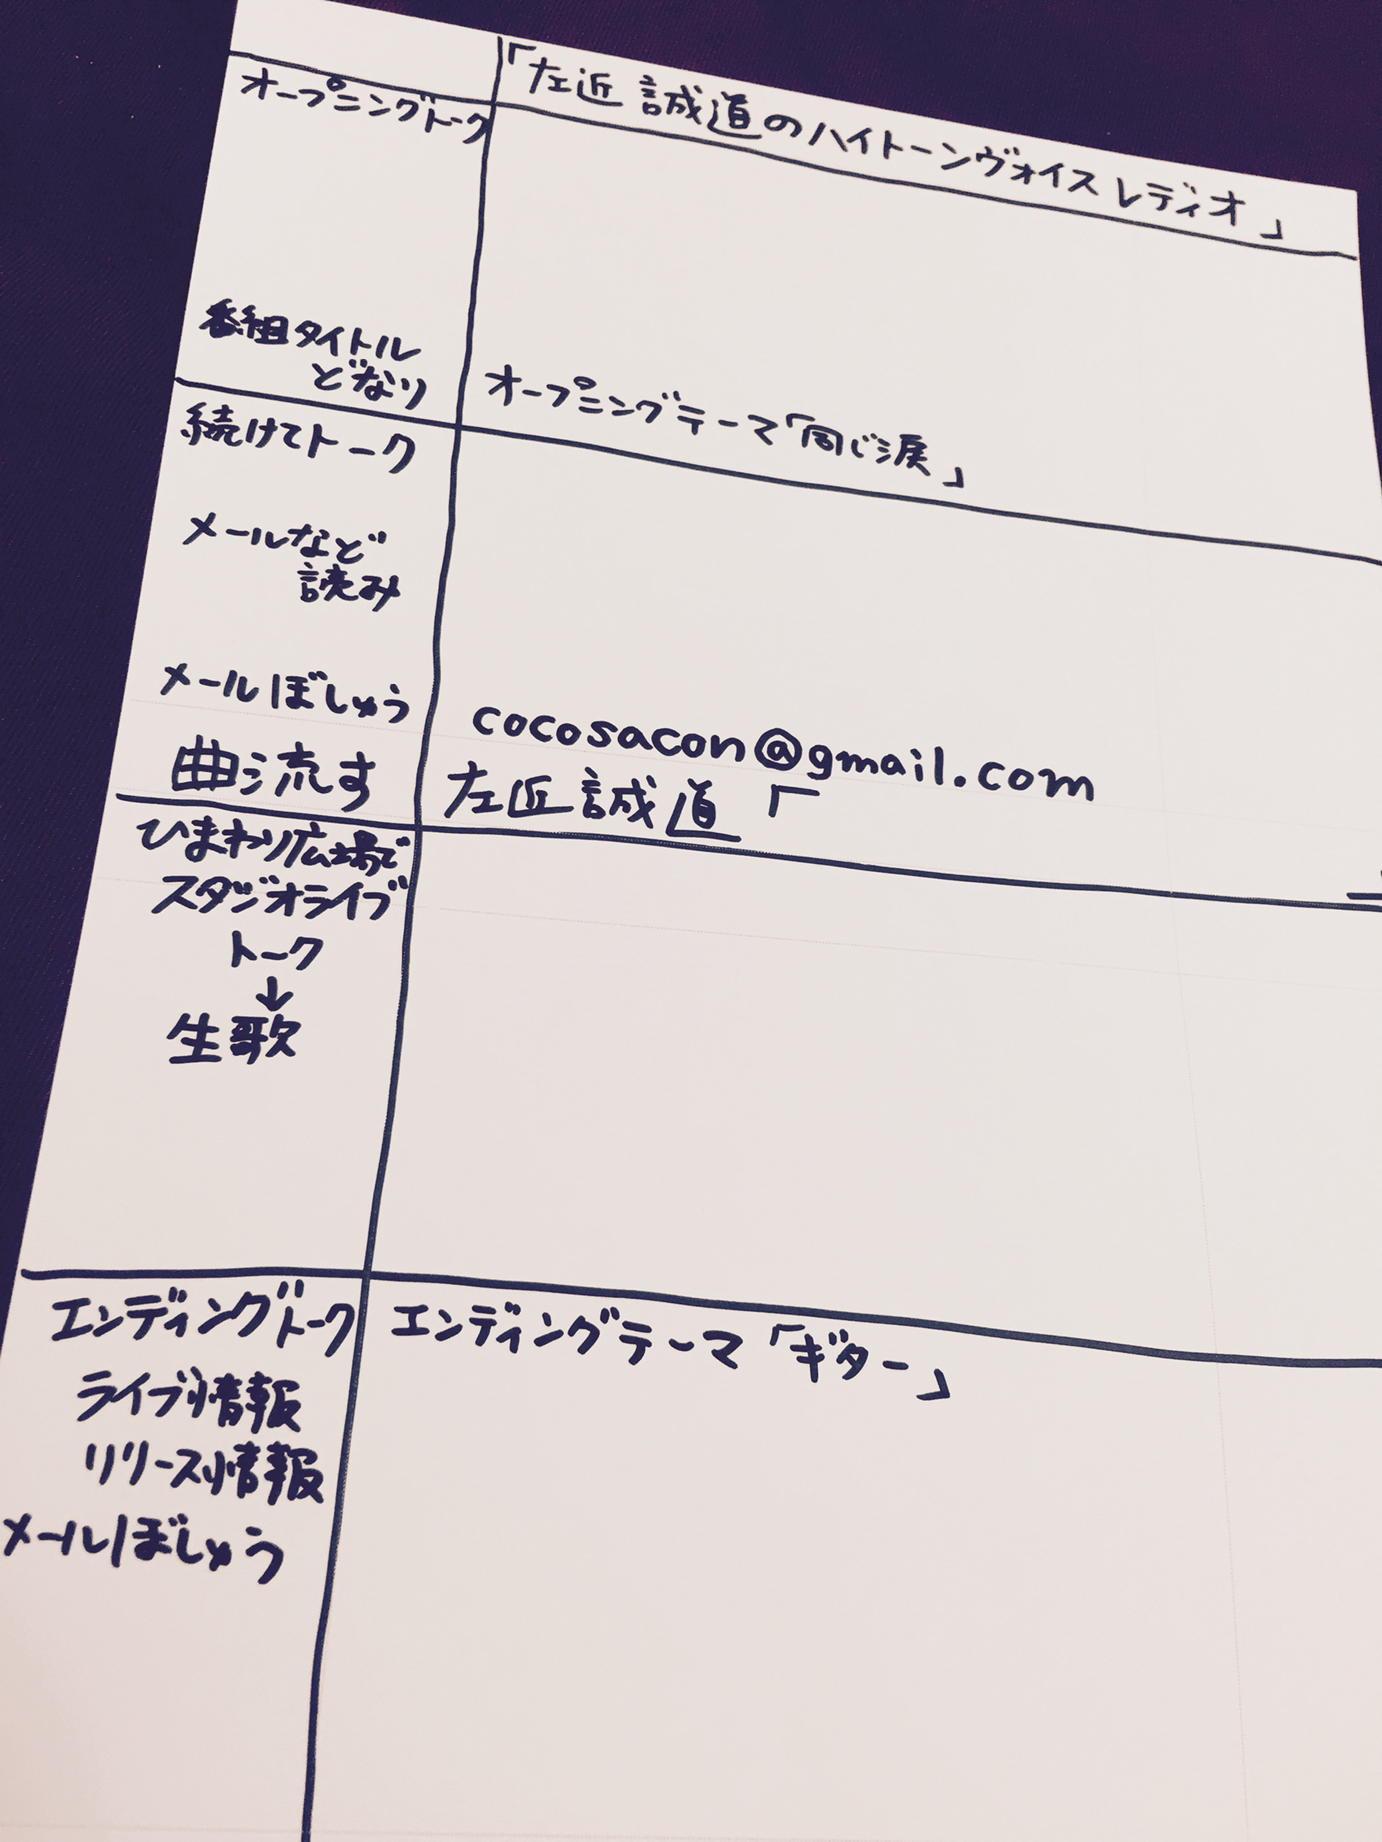 「左近 誠道のハイトーンヴォイス レディオ」
オープニングトーク
番組タイトル
どなり
オープニングテーマ「同じ涙」
続けてトーク
メールなど
読み
メールぼしゅう
cocosacon@gmail.com
曲流す
左近 誠道「
ひまわり広場で
スタジオライブ
トーク
↓
生歌
エンディングトーク
エンディングテーマ「ギター」
ライブ情報
リリース情報
メールぼしゅう